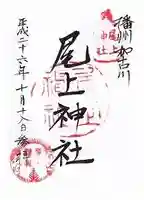 播州加古川
尾上神社
平成二十六年十月十八日参拝